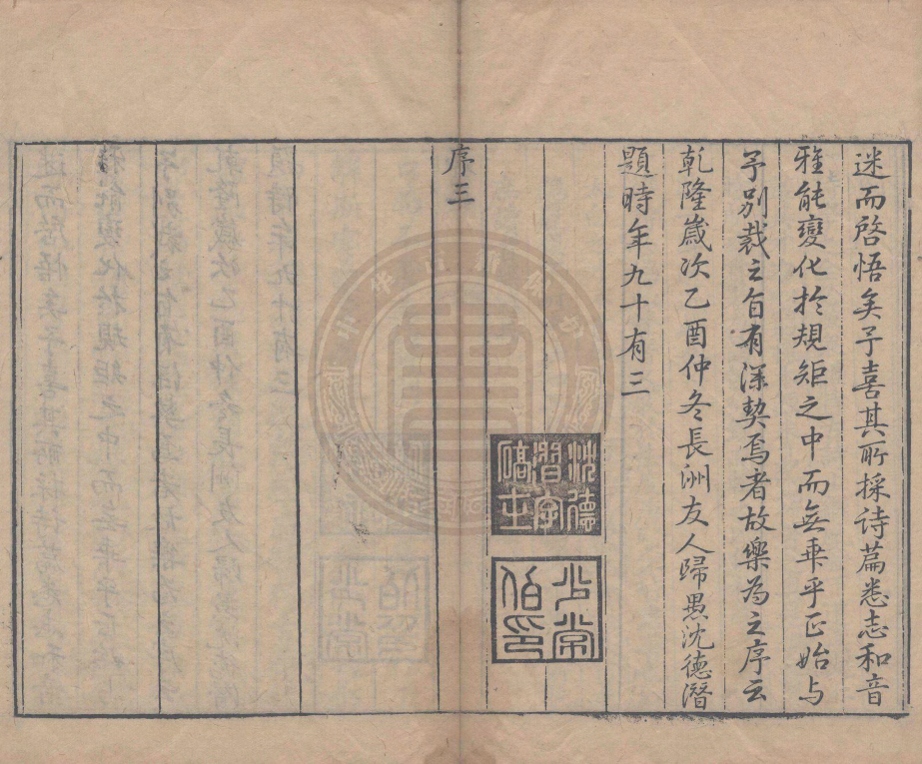 迷而啓悟矣予喜其所採诗篇悉志和音
雅能變化於規矩之中而無乖乎正始与
予别裁之旨有深契焉者故樂為之序云
乾隆歲次乙酉仲冬長洲友人歸愚沈德潛
題時年九十有三
沈德潛字碻士
少常伯印
序三